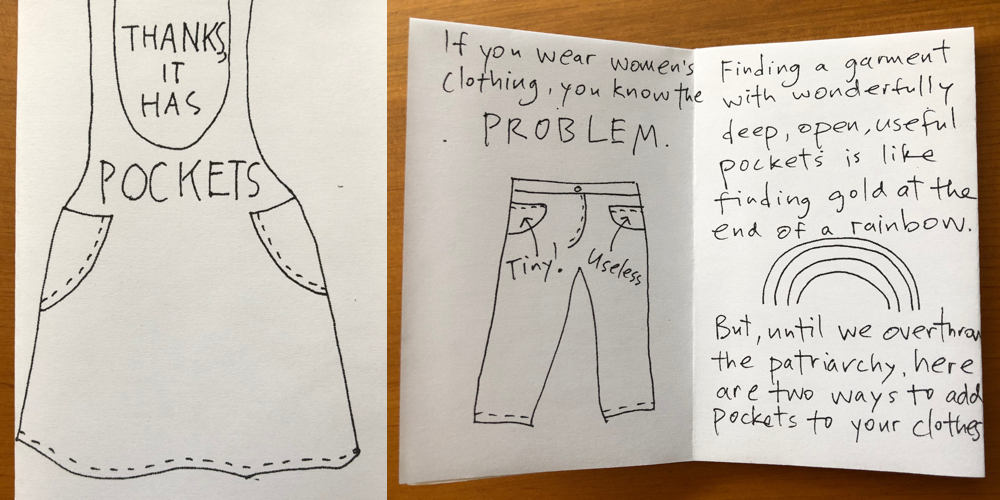 THANKS,
IT
HAS
POCKETS
If you wear women's
clothing, you know the
PROBLEM.
Tiny!
Useless
Finding a garment
with wonderfully
deep, open, useful
pockets is like
finding gold at the
end of a rainbow.
But, until we overthrow
the patriarchy, here
are two ways to add
pockets to your clothes